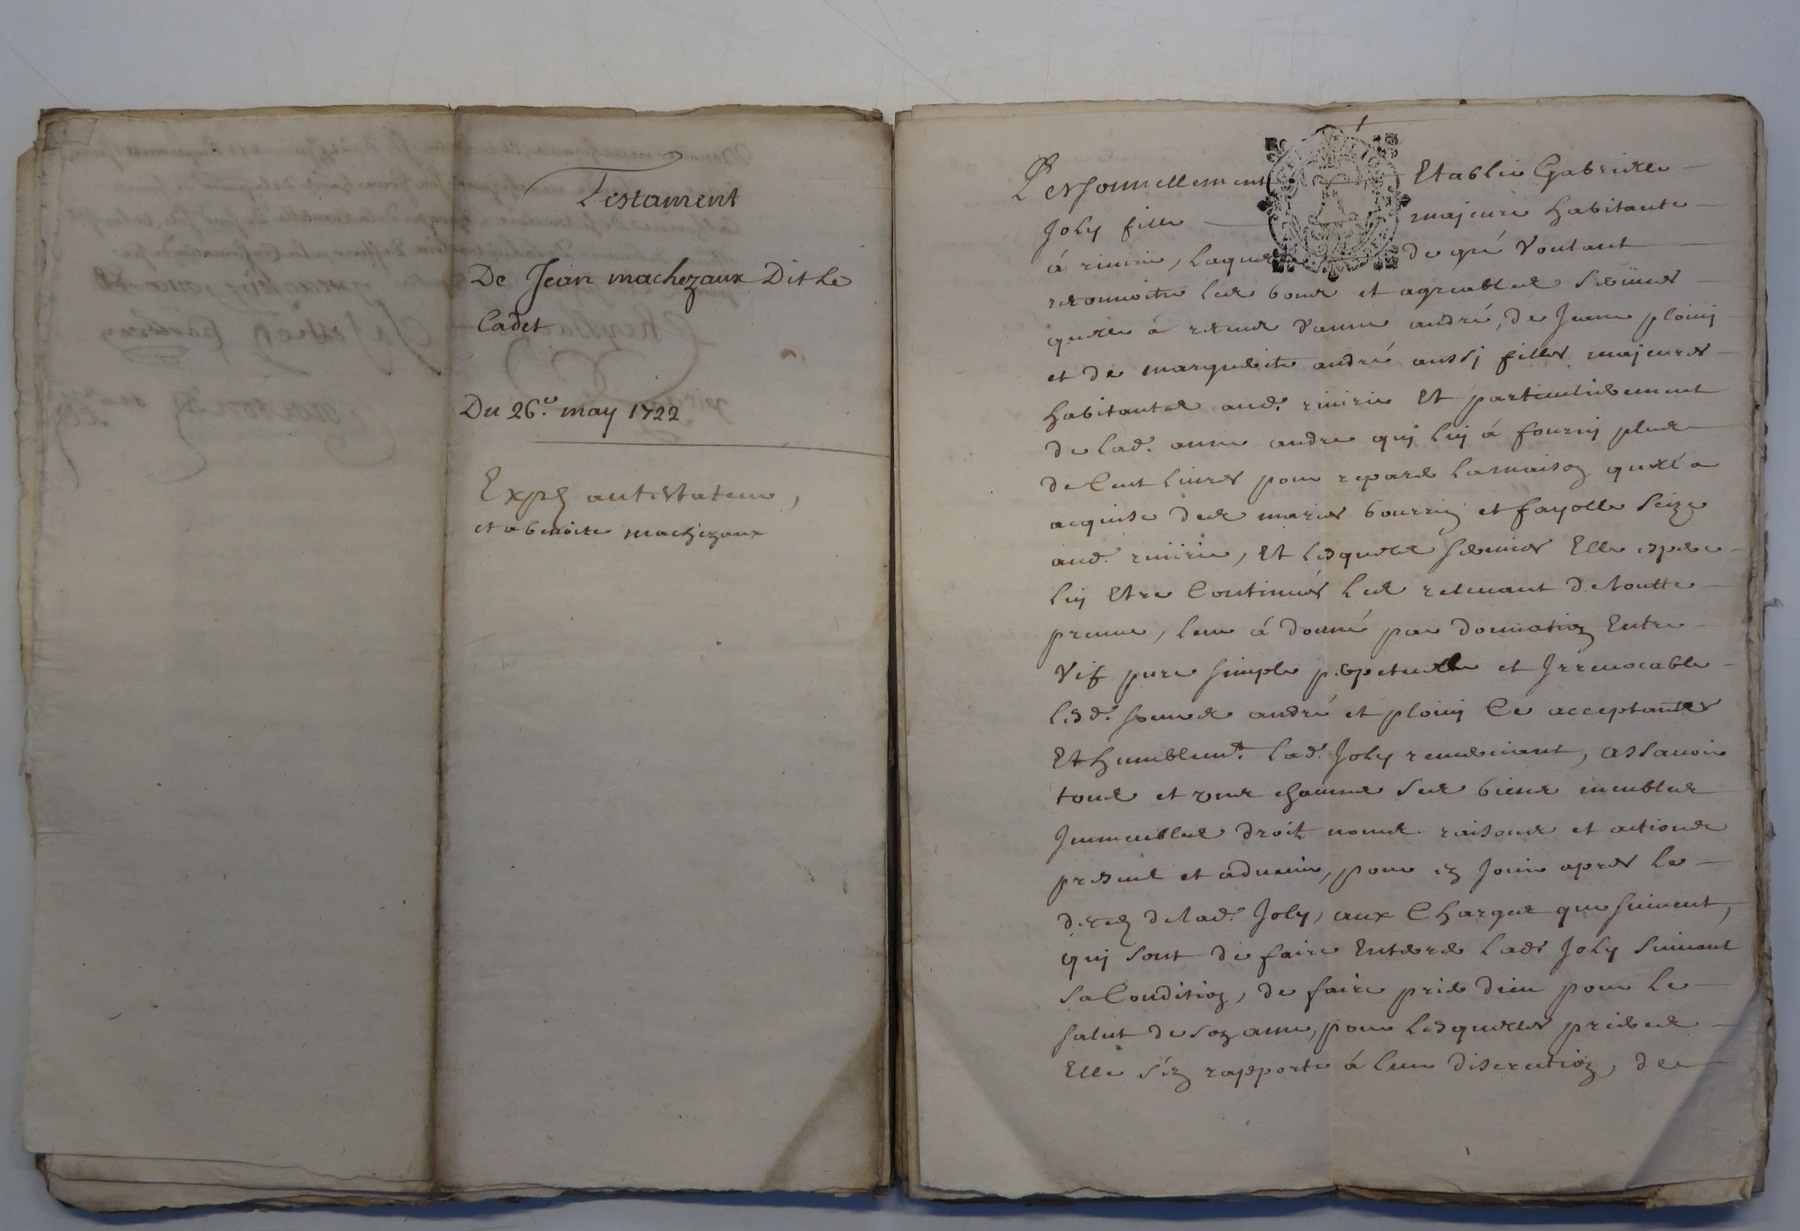 Testament
De Jean machezaux Dit Le
Cadet
Du 26e. may 1722
Expé au testateur,
et a benoite machezaux
1
Personnellement Etablie Gabrielle
Joly fille majeure habitante
á riuirie, laquelle de gré voulant
reconnoitre les bons et agreables seruices
quelle á receus danne andré, de Jeanne plouy
et de marguerite andré aussy filles majeures
habitantes aud. riuirie Et particulierement
de lad. anne andre quy luy á fourny plus
de Cent liures pour reparer la maison quelle a
acquise des maries bourrin et fayolle seize
aud. riuirie, Et lesquels seruices Elle espere
luy Etre Continués les releuant de toutte
preuue, leur á donné par donnation Entre
Vif pure simple perpetuelle et Irreuocable
lesd. andré et plouy Ce acceptantes
Et humblemt. lad. Joly remerciant, assauoir
tous et vns chacuns ses biens meubles
Immeubles droits noms raisons et actions
presents et aduenir, pour en Jouir apres le
deces de lad. Joly, aux Charges que suiuent,
quy sont de faire Enterer lade Joly suiuant
sa Condition, de faire prier dieu pour le
salut de son ame, pour lesquelles prieres
Elle s'en rapporte á leur discretion, de